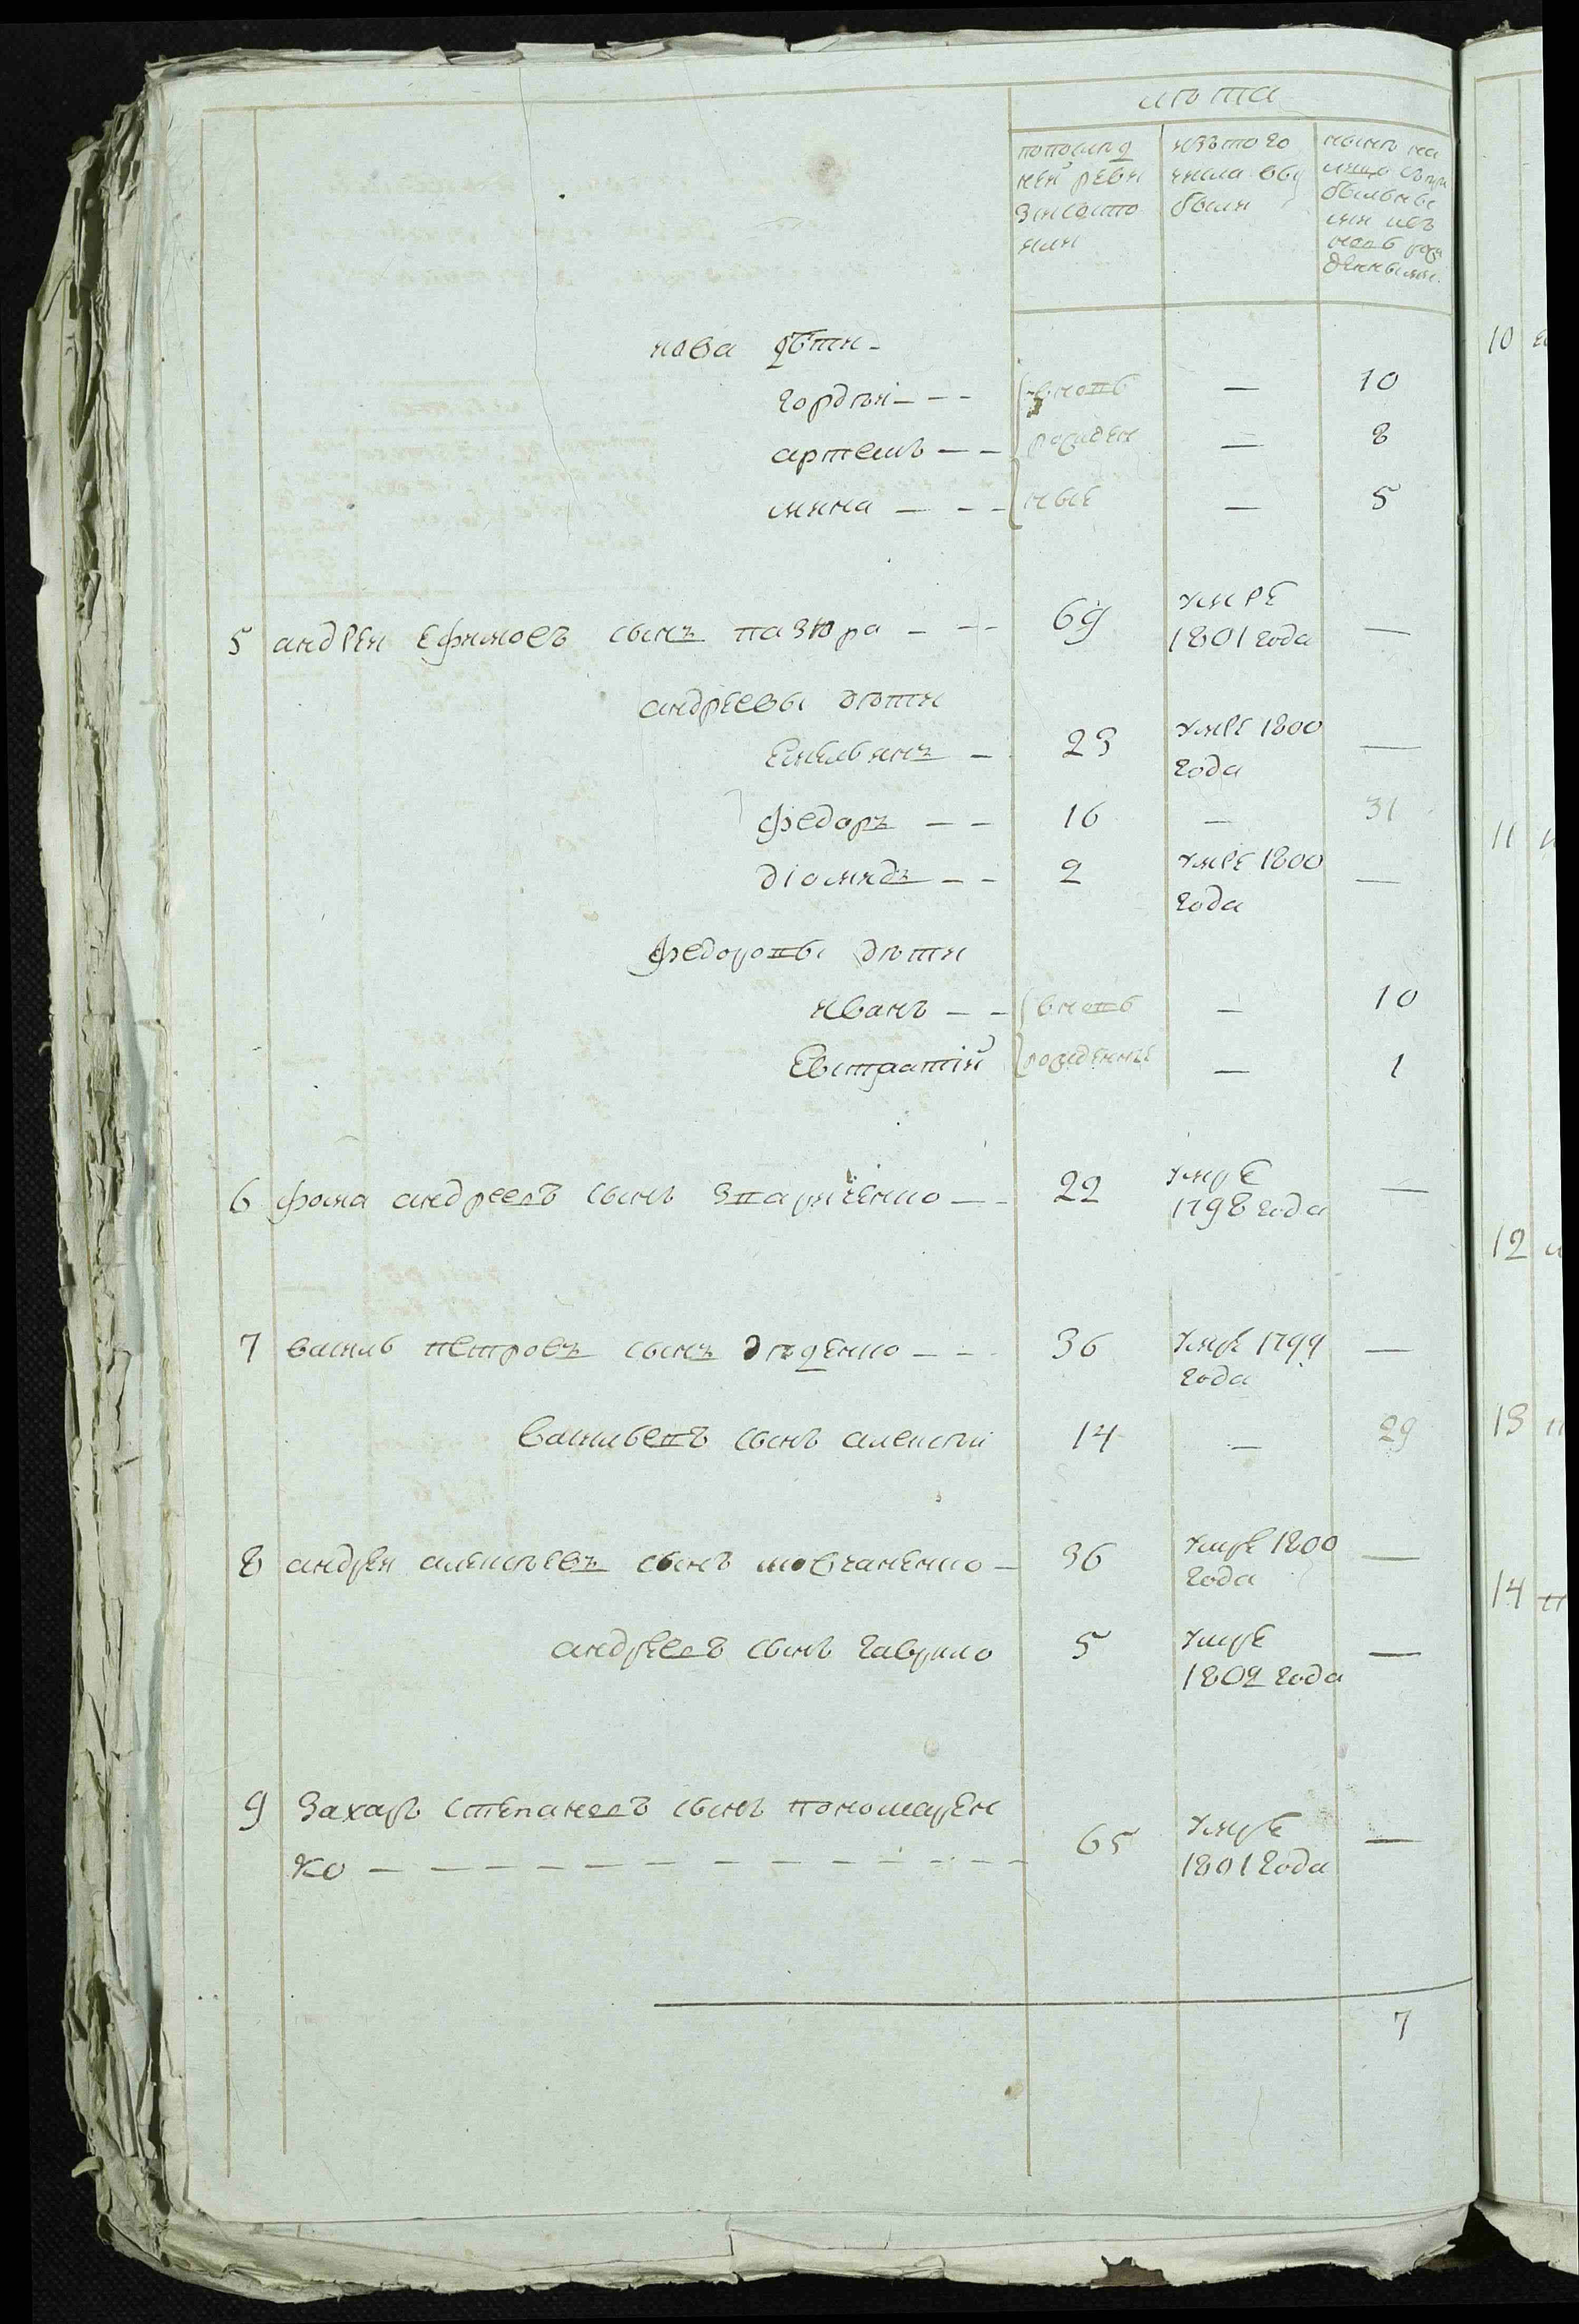 лѣта
попослѣд ней реви зіи состо яли
изътого числа вы были
нынѣ на лицо съпри былыми или из вновь рож денными
нова дѣти
гордѣи вновь — 10
артемъ рожден — 8
мина ные — 5
5 андреи ефимовъ сынъ пазюра 69 умре 1801 года —
андреевы дѣти
Емельянъ 23 умре 1800 года —
федоръ 16 — 31
діомидъ 2 умре 1800 года —
федоровы дѣти
иванъ вновь — 10
Евстратій рожденные — 1
6 фома андреевъ сынъ 22 умре 1798 года —
7 василь петровъ сынъ дѣденко 36 умре 1799 года —
васильевъ сынъ алексѣй 14 — 29
8 андреи алексѣевъ сынъ мовчаненко 36 умре 1800 года —
андреевъ сынъ гаврило 5 умре 1802 года —
9 Захаръ степановъ сынъ пономарен
ко 65 умре 1801 года —
7
10
11
12
13
14